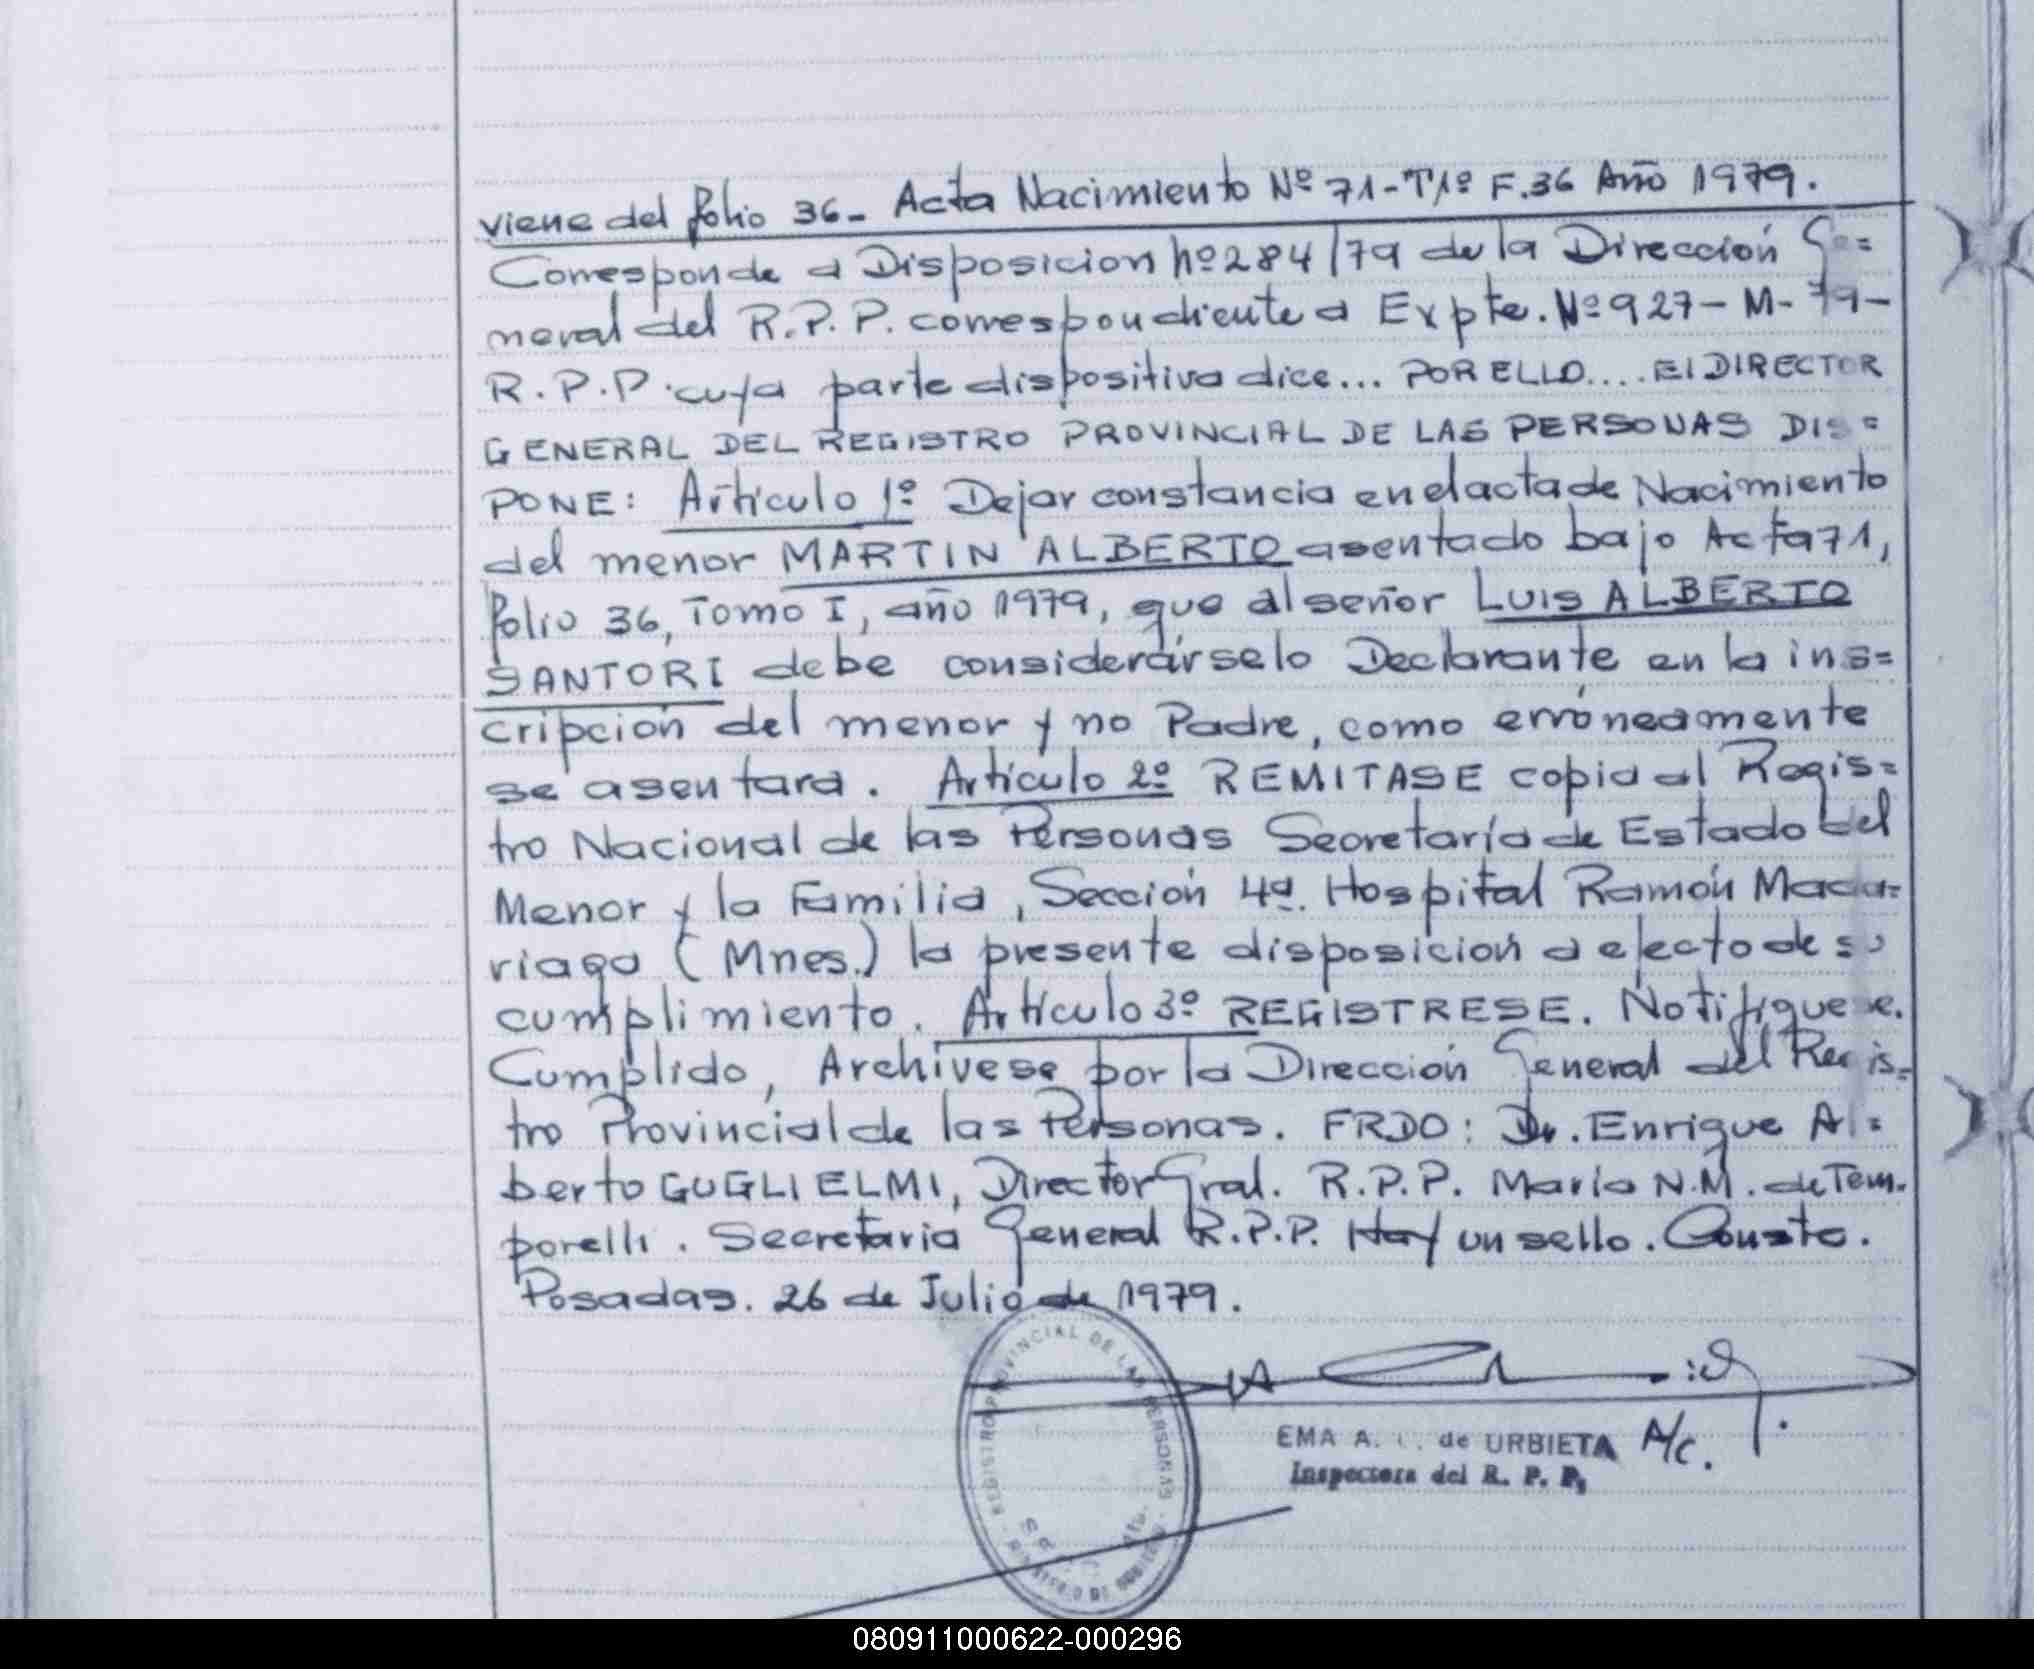 viene del folio 36- Acta Nacimiento Nº 71-T1º F.36 Año 1979.
Corresponde a Disposicion nº 284/79 de la Dirección Ge=
neral del R.P.P. correspondiente a Expte. Nº 927-M-79-
R.P.P. cuya parte dispositiva dice... POR ELLO.... El DIRECTOR
GENERAL DEL REGISTRO PROVINCIAL DE LAS PERSONAS DIS=
PONE: Artículo 1º Dejar constancia en el acta de Nacimiento
del menor MARTIN ALBERTO asentado bajo Acta 71,
folio 36, Tomo I, año 1979, que al señor LUIS ALBERTO
SANTORI debe considerárselo Declarante en la ins=
cripción del menor y no Padre, como erróneamente
se asentara. Artículo 2º REMITASE copia al Regis=
tro Nacional de las Personas Secretaría de Estado del
Menor y la Familia, Sección 4ª. Hospital Ramón Mada=
riaga (Mnes.) la presente disposición a efecto de su
cumplimiento. Artículo 3º REGISTRESE. Notifiquese.
Cumplido, Archívese por la Dirección General del Regis=
tro Provincial de las Personas. FRDO: Dr. Enrique Al=
berto GUGLIELMI, Director Gral. R.P.P. María N.M. de Tem-
porelli. Secretaria General R.P.P. Hay un sello. Conste.
Posadas. 26 de Julio de 1979.
REGISTRO PROVINCIAL DE LAS PERSONAS
MINISTERIO DE GOBIERNO
EMA A. de URBIETA A/c.
Inspectora del R. P. P.
080911000622-000296